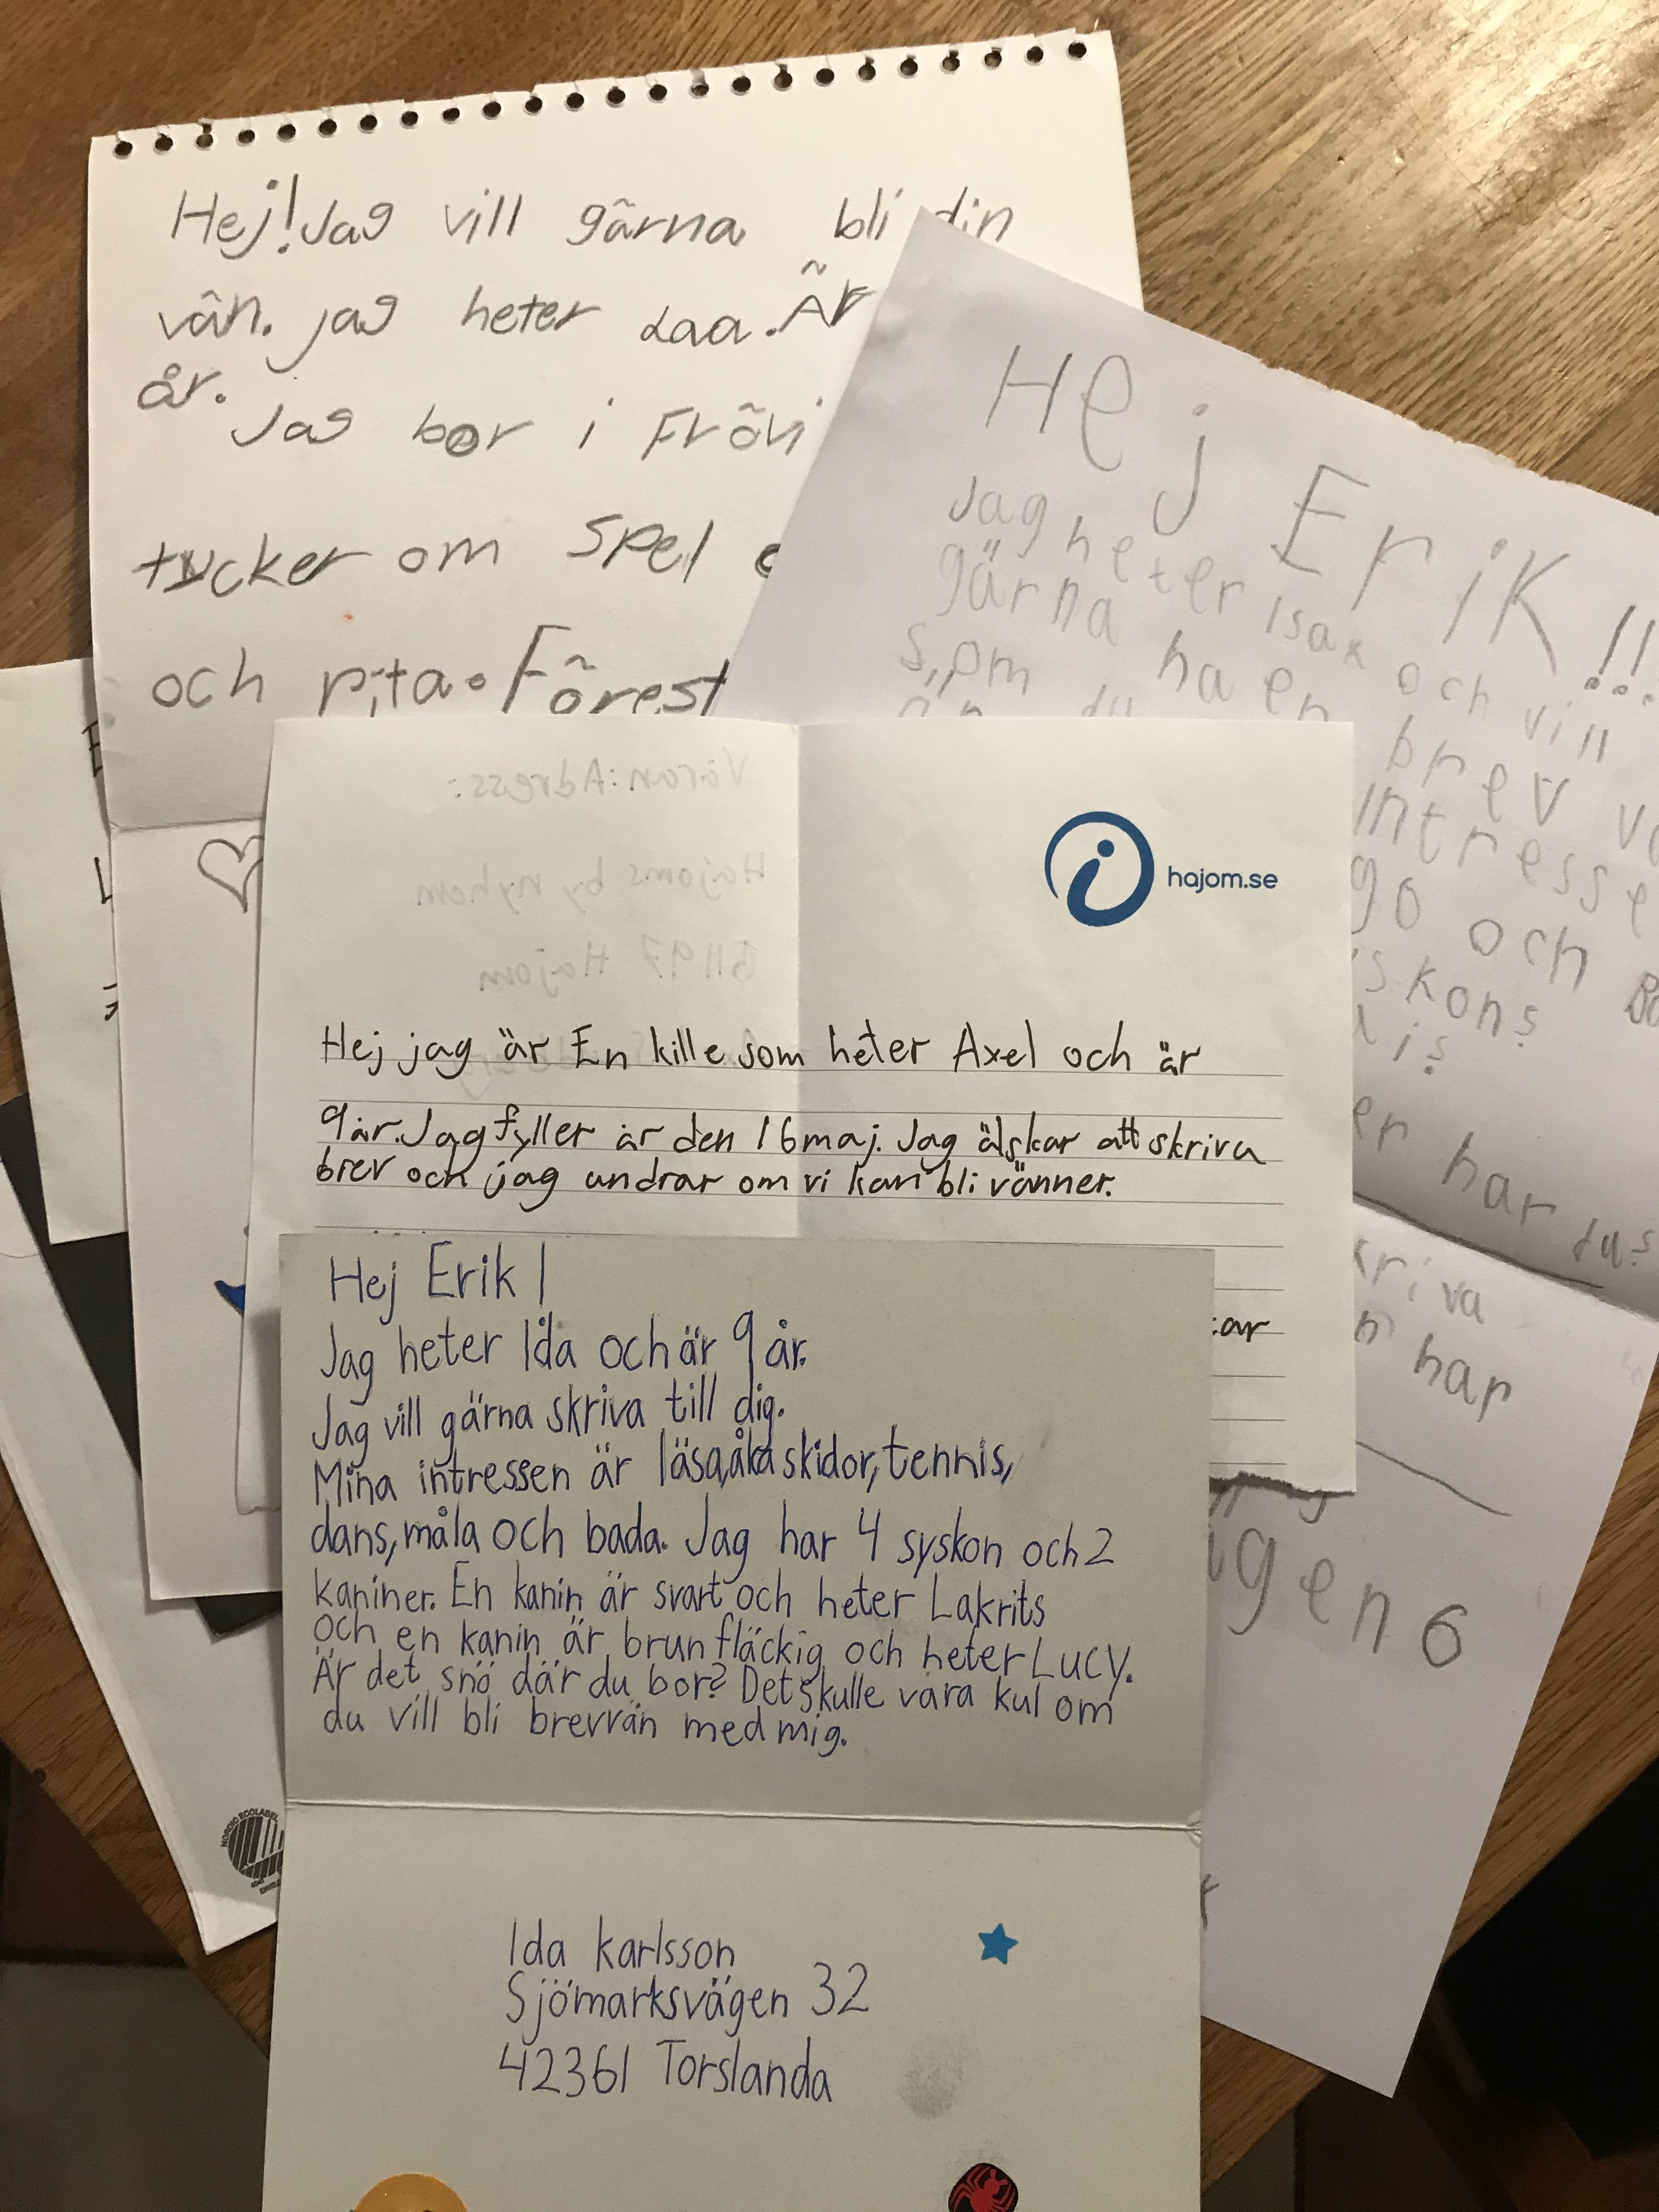 Hej! Jag vill gärna bli din
vän. jag heter Laa. Är
år.
Jag bor i Frövi
tycker om spel
och rita. Förest
Hej Erik!!!
Jag heter Isak och vill
gärna ha en brev
som du
intresse
go och
skons
er har du?
kriva
n har
gen 6
Våran: Adress:
Hajoms by nyhem
51197 Hajom
hajom.se
Hej jag är En kille som heter Axel och är
9 år. Jag fyller år den 16 maj. Jag älskar att skriva
brev och jag undrar om vi kan bli vänner.
Hej Erik!
Jag heter Ida och är 9 år.
Jag vill gärna skriva till dig.
Mina intressen är läsa, åka skidor, tennis,
dans, måla och bada. Jag har 4 syskon och 2
kaniner. En kanin är svart och heter Lakrits
och en kanin är brun fläckig och heter Lucy.
Är det snö där du bor? Det skulle vara kul om
du vill bli brevvän med mig.
Ida Karlsson
Sjömarksvägen 32
42361 Torslanda
NORDIC ECOLABEL